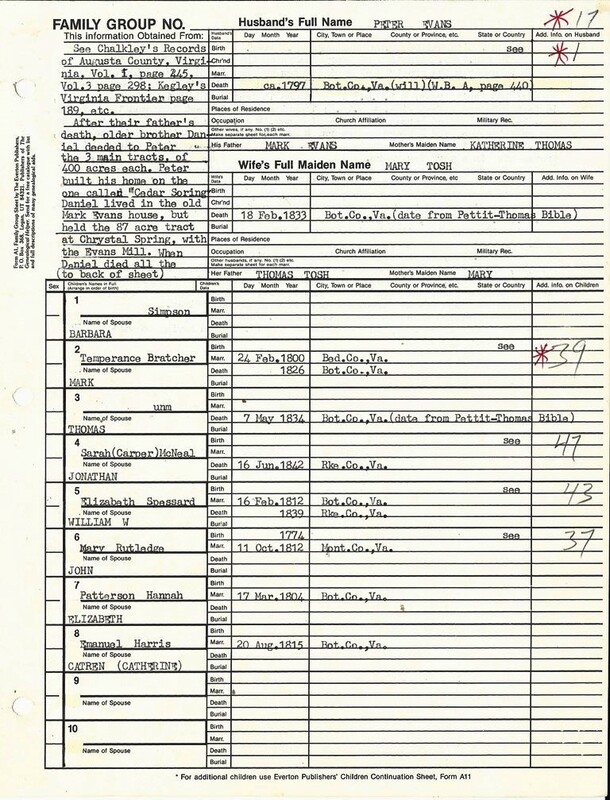 FAMILY GROUP NO. Husband's Full Name PETER EVANS *17
This information Obtained From: Husband's Data Day Month Year City, Town or Place County or Province, etc. State or Country Add. Info. on Husband
See Chalkley's Records Birth See *1
of Augusta County, Virgi- Chr'nd
nia, Vol. 1, page 245, Marr.
Vol.3 page 298; Kegley's Death ca.1797 Bot.Co.,Va.(will)(W.B. A, page 440)
Virginia Frontier page Burial
189, etc. Places of Residence
After their father's Occupation Church Affiliation Military Rec.
death, older brother Dan- Other wives, if any. No. (1) (2) etc. Make separate sheet for each marr.
iel deeded to Peter His Father MARK EVANS Mother's Maiden Name KATHERINE THOMAS
the 3 main tracts, of
400 acres each. Peter Wife's Full Maiden Name MARY TOSH
built his home on the Wife's Data Day Month Year City, Town or Place County or Province, etc. State or Country Add. Info. on Wife
one called "Cedar Soring" Birth
Daniel lived in the old Chr'nd
Mark Evans house, but Marr.
held the 87 acre tract Death 18 Feb.1833 Bot.Co.,Va.(date from Pettit-Thomas Bible)
at Chrystal Spring, with Burial
the Evans Mill. When Places of Residence
Daniel died all the Occupation Church Affiliation Military Rec.
Other husbands, if any. No. (1) (2) etc. Make separate sheet for each marr.
(to back of sheet) Her Father THOMAS TOSH Mother's Maiden Name MARY
Form A1, Family Group Sheet by The Everton Publishers,
P. O. Box 368, Logan, UT 84321. Publishers of The
Genealogical Helper. Send for a free catalogue with list
and full description of many genealogical aids.
Sex Children's Names in Full (Arrange in order of birth) Children's Data Day Month Year City, Town or Place County or Province, etc. State or Country Add. info. on Children
1 Birth
Simpson Marr.
Name of Spouse Death
BARBARA Burial
2 Birth See *39
Temperance Bratcher Marr. 24 Feb.1800 Bed.Co.,Va.
Name of Spouse Death 1826 Bot.Co.,Va.
MARK Burial
3 Birth
unm Marr.
Name of Spouse Death 7 May 1834 Bot.Co.,Va.(date from Pettit-Thomas Bible)
THOMAS Burial
4 Birth See 47
Sarah(Carper)McNeal Marr.
Name of Spouse Death 16 Jun.1842 Rke.Co.,Va.
JONATHAN Burial
5 Birth See 43
Elizabeth Spessard Marr. 16 Feb.1812 Bot.Co.,Va.
Name of Spouse Death 1839 Rke.Co.,Va.
WILLIAM W Burial
6 Birth 1774 See 37
Mary Rutledge Marr. 11 Oct.1812 Mont.Co.,Va.
Name of Spouse Death
JOHN Burial
7 Birth
Patterson Hannah Marr. 17 Mar.1804 Bot.Co.,Va.
Name of Spouse Death
ELIZABETH Burial
8 Birth
Emanuel Harris Marr. 20 Aug.1815 Bot.Co.,Va.
Name of Spouse Death
CATREN (CATHERINE) Burial
9 Birth
Marr.
Name of Spouse Death
Burial
10 Birth
Marr.
Name of Spouse Death
Burial
* For additional children use Everton Publishers' Children Continuation Sheet, Form A11